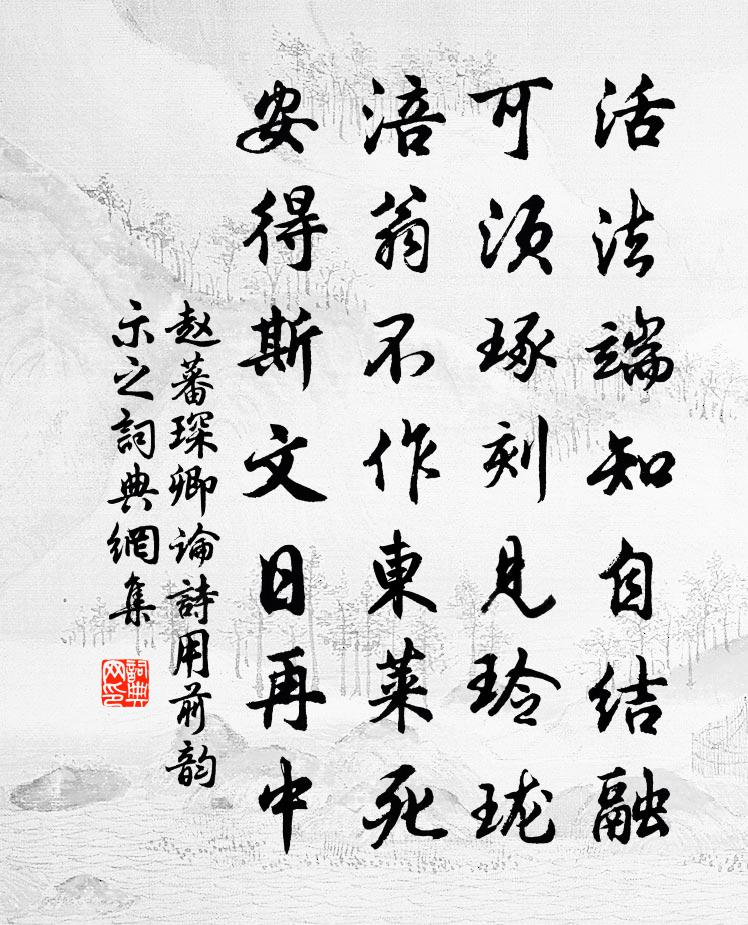 活法端知自结融
可须琢刻见玲珑
涪翁不作東莱死
安得斯文日再中
赵蕃琛卿論詩用前韵
示之詞典網集
詞典
网印